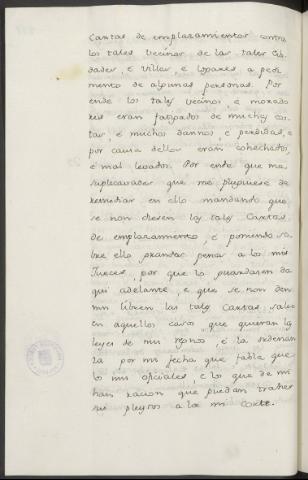 Cartas de emplazamientos contra
los tales vecinos de las tales Cib
dades, e villas, e logares a pedi
mento de algunas personas. Por
ende los tales vecinos, e morado
res eran fatigados de muchas cos
tas, e muchos dannos, e perdidas, e
por causa dellos eran cohechados,
e mal levados. Por ende que me
suplicavades que me pluguiese de
remediar en ello mandando que
se non diesen las tales Cartas
de emplazamiento, e poniendo so
bre ello grandes penas a los mis
Jueces, por que lo guardasen da
qui adelante, e que se non den
nin libren las tales Cartas, salvo
en aquellos casos, que quieren las
leyes de mis regnos, e la ordenan
za por mi fecha que fabla que
los mis oficiales, e los que de mi
han racion que puedan traher
sus pleytos a la mi corte.